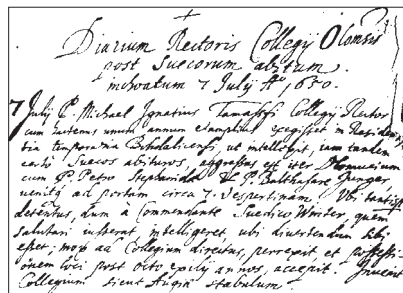 Diarium Rectoris Collegij Olomūs
post Suecorum abitum
inchoatum 7 July Aº 1650.
7 July P. Michael Ignatius Collegij Rector
cum unum annum exegisset in Residen
tia temporanea ut intellexit, iam tandem
Suecos abituros, aggressus est iter Olomucium
cum P. Petro et P. Balthasare
ad portam circa 7. Vespertinam. Ubi tantisper
detentus, dum a Commendante Suedico Winter, quem
salutari iusserat, intelligeret ubi divertendum sibi
esset; mox ad Collegium directus, perrexit, et possessi-
onem loci post octo exilij annos, accepit. Invenit
Collegium sicut Augiæ stabulum